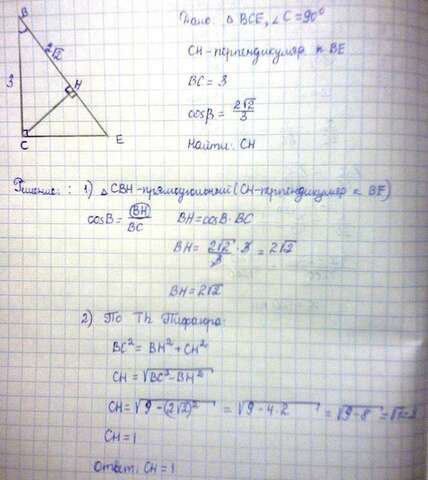 B
3
2√2
H
C
E
Дано: △ BCE, ∠C = 90°
CH-перпендикуляр к BE
BC = 3
cosβ = 2√2/3
Найти: CH
Решение: 1) △CBH-прямоугольный (CH-перпендикуляр к BE)
cosB = BH/BC BH = cosB · BC
BH = 2√2/3 · 3 = 2√2
BH = 2√2
2) По Th Пифагора:
BC² = BH² + CH²
CH = √BC² - BH²
CH = √9 - (2√2)² = √9 - 4·2 = √9 - 8 = √1 = 1
CH = 1
Ответ: CH = 1